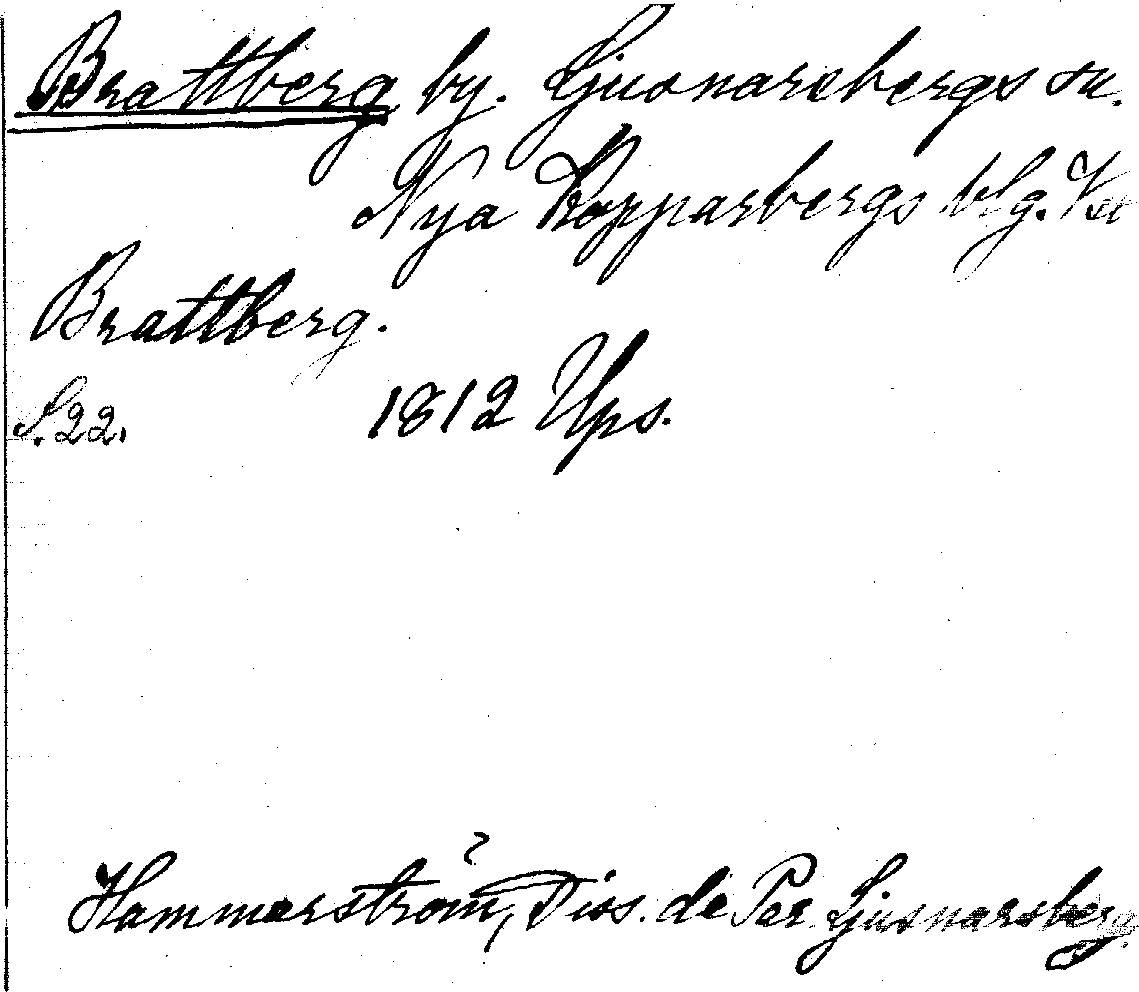 Brattberg by. Ljusnarsbergs sn.
Nya Kopparbergs blg. Vstm
Brattberg.
S. 22. 1812 Ups.
Hammerström, Diss. de Par. Ljusnarsberg.